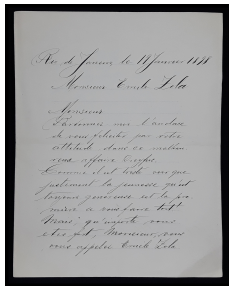 Rio de Janeiro le 18 Janvier 1898
Monsieur Emile Zola
Monsieur
l'audace
de vous féliciter par votre
attitude dans ce
affaire Dreyfus.
Comme il est triste voir que
justement la jeunesse qu'est
toujours généreuse est la pre
mière a vous faire tort!
Mais, qu'importe vous
etes fort, Monsieur, vous
vous appelez Emile Zola